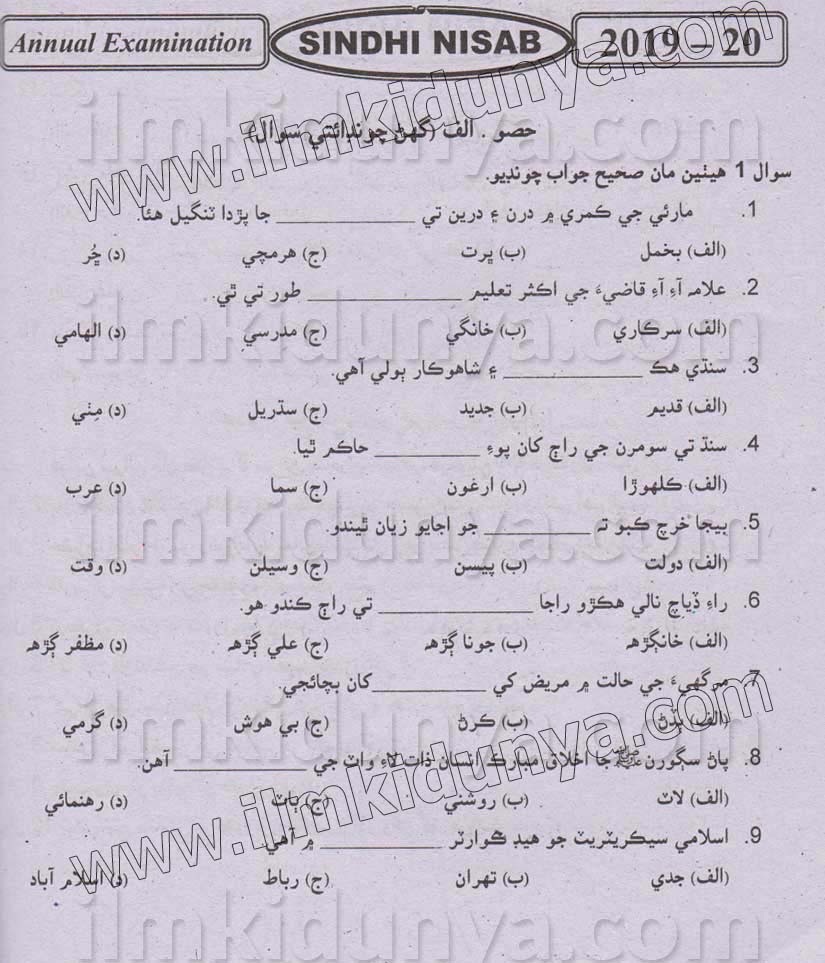 Annual Examination SINDHI NISAB 2019 – 20
حصو . الف (گھڻ چونڊائتي سوال)
سوال 1 هيٺين مان صحيح جواب چونڊيو.
1. مارئي جي ڪمري ۾ درن ۽ درين تي ______________ جا پڙدا ٽنگيل هئا.
(الف) بخمل (ب) ڀرت (ج) هرمچي (د) چُر
2. علامہ آءِ آءِ قاضيءَ جي اڪثر تعليم ______________ طور تي ٿي.
(الف) سرڪاري (ب) خانگي (ج) مدرسي (د) الهامي
3. سنڌي هڪ ______________ ۽ شاهوڪار ٻولي آهي.
(الف) قديم (ب) جديد (ج) سڌريل (د) مٺي
4. سنڌ تي سومرن جي راڄ کان پوءِ __________ حاڪم ٿيا.
(الف) ڪلهوڙا (ب) ارغون (ج) سما (د) عرب
5. بيجا خرچ ڪبو تہ __________ جو اجايو زيان ٿيندو.
(الف) دولت (ب) پيسن (ج) وسيلن (د) وقت
6. راءِ ڏياچ نالي هڪڙو راجا ______________ تي راڄ ڪندو هو.
(الف) خانڳڙهہ (ب) جوناڳڙهہ (ج) علي ڳڙهہ (د) مظفر ڳڙهہ
7. مرگهيءَ جي حالت ۾ مريض کي ___________ کان بچائجي
(الف) ٻڏڻ (ب) ڪرڻ (ج) بي هوش (د) گرمي
8. پاڻ سڳورنﷺ جا اخلاق مبارڪ انسان ذات لاءِ واٽ جي ____________ آهن.
(الف) لاٽ (ب) روشني (ج) باٽ (د) رهنمائي
9. اسلامي سيڪريٽريٽ جو هيڊ ڪوارٽر ____________ ۾ آهي.
(الف) جدي (ب) تهران (ج) رباط (د) اسلام آباد
www.ilmkidunya.com
www.ilmkidunya.com
ilmkidunya.com
ilmkidunya.com
ilmkidunya.com
ilmkidunya.com
ilmkidunya.com
ilmkidunya.com